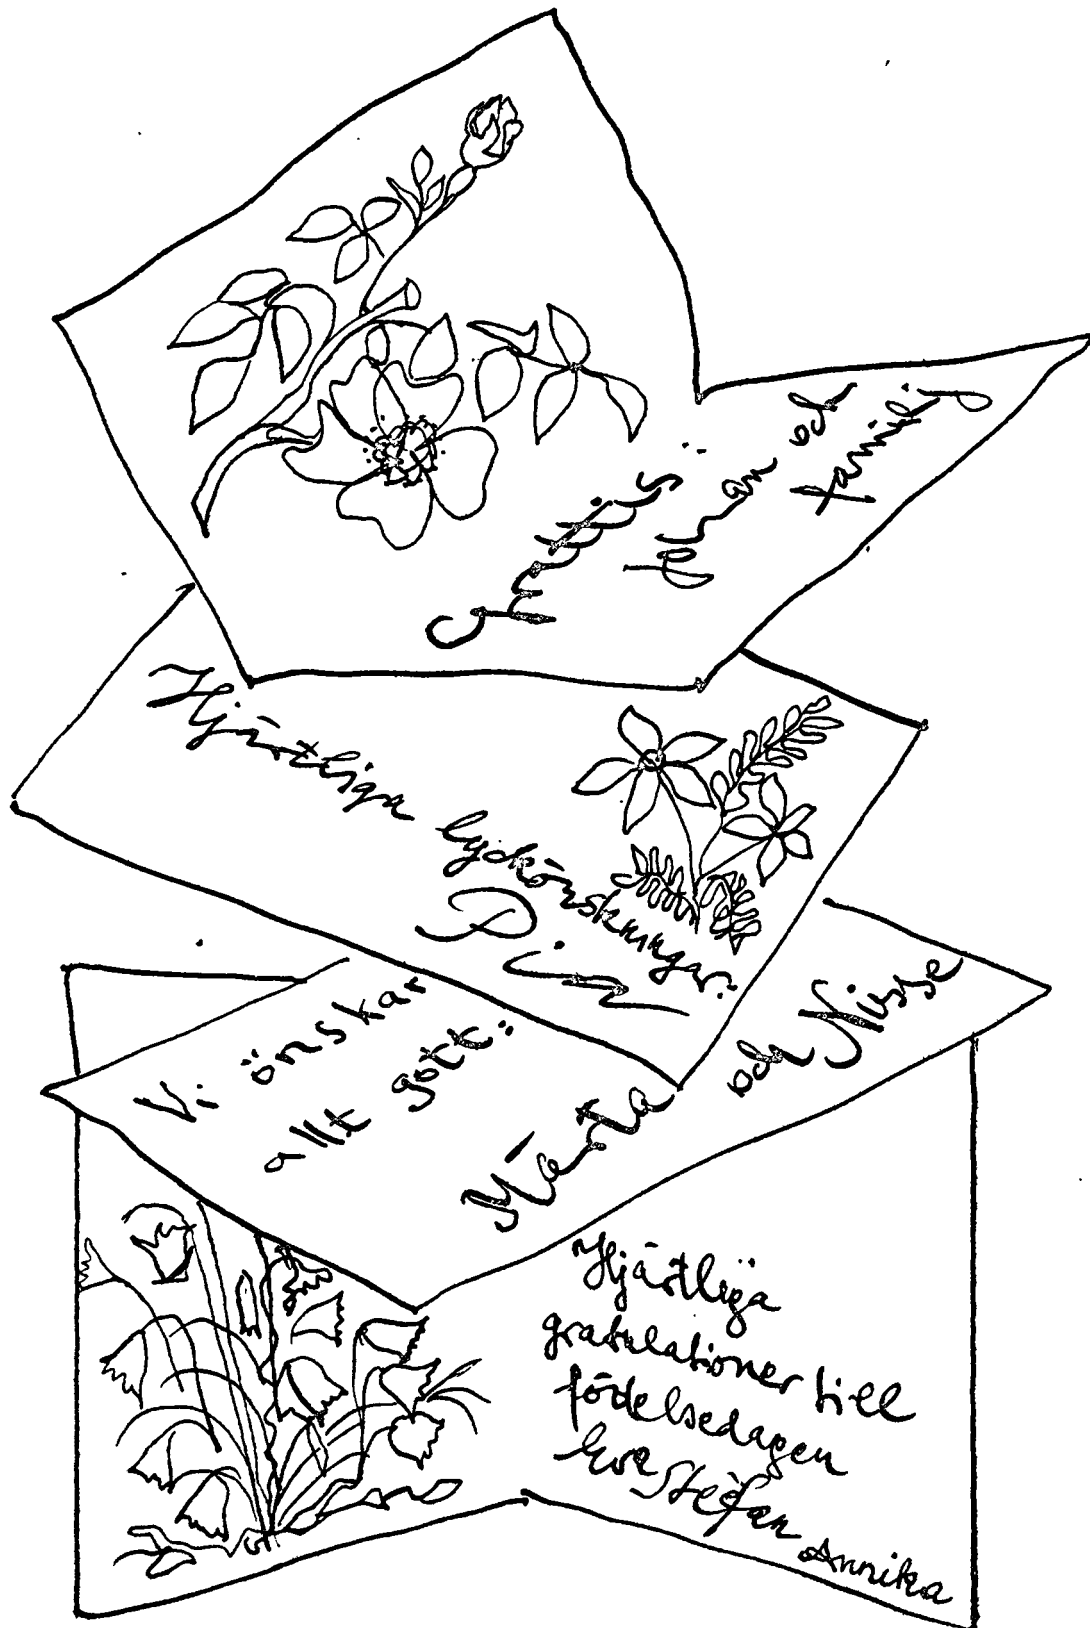 Grattis
Johan och
familj
Hjärtliga lyckönskningar:
Pia
Vi önskar
allt gott:
Märta och Nisse
Hjärtliga
gratulationer till
födelsedagen
Eva Stefan Annika